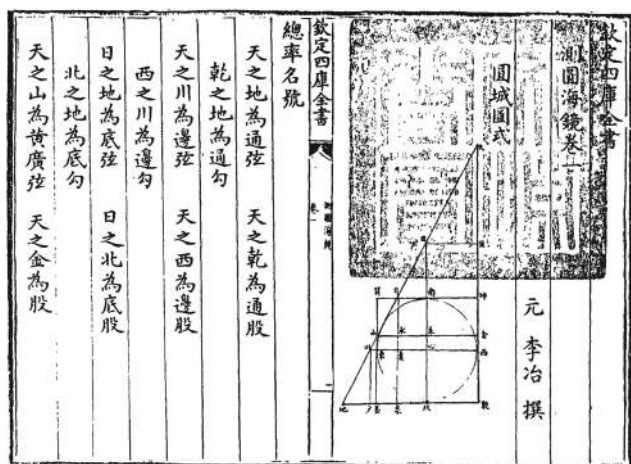 欽定四庫全書
測圓海鏡卷一
元 李冶 撰
圓城圖式
天
坤
金
西
乾
心
北
山
川
東
日
地
夕
泉
欽定四庫全書
測圓海鏡
卷一
一
總率名號
天之地為通弦 天之乾為通股
乾之地為通勾
天之川為邊弦 天之西為邊股
西之川為邊勾
日之地為底弦 日之北為底股
北之地為底勾
天之山為黄廣弦 天之金為股